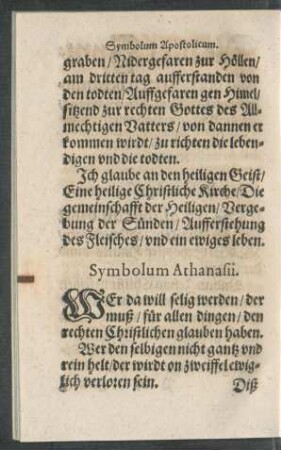 Symbolum Apostolicum.
graben/Nidergefaren zur Höllen/
am dritten tag aufferstanden von
den todten/Auffgefaren gen Himel/
sitzend zur rechten Gottes des All-
mechtigen Vatters/von dannen er
kommen wirdt/zu richten die leben-
digen vnd die todten.
Jch glaube an den heiligen Geist/
Eine heilige Christliche Kirche/Die
gemeinschafft der Heiligen/Verge-
bung der Sünden/Aufferstehung
des Fleisches/vnd ein ewiges leben.
Symbolum Athanasii.
WEr da will selig werden/der
muß/für allen dingen/den
rechten Christlichen glauben haben.
Wer den selbigen nicht gantz vnd
rein helt/der wirdt on zweiffel ewig-
lich verloren sein.
Diß